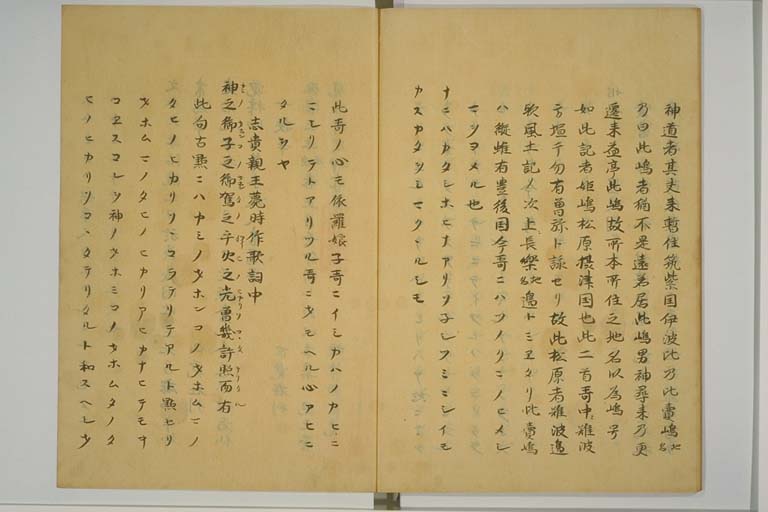 神道者其夫来暫住筑紫国伊波比乃比賣嶋地名
乃曰此嶋者猶不是遠若居此嶋男神尋来乃更
遷来並亭此嶋故所本所住之地名以為嶋号
如此記者姫嶋松原摂津国也此二首哥中難波
方塩干勿有曽祢ト詠セリ故此松原者難波邊
歟風土記ノ次上長樂地名邉トミエタリ比賣嶋
ハ縦雖有豊後国今哥ニハツノクニノヒメシ
マヲヨメル也
ナニハカタシホヒナアリソ子シツミニシイモ
カスカタヲミマククルシモ
此哥ノ心モ依羅娘子哥ニイシカハノカヒニ
マシリテトアリツル哥ニヲモヘル心アヒニ
タルヲヤ
志貴親王薨時作歌詞中
神之御子之御駕之手火之光曽幾許照而有
此句古點ニハカミノオホンコノオホムマノ
タヒノヒカリソコヽラテリテアルト點セリ
オホムマノタヒノヒカリアヒカナヒテモキ
コエスコレヲ神ノオホミコノオホムタノタ
ヒノヒカリソコヽタテリタルト和スヘシヤ